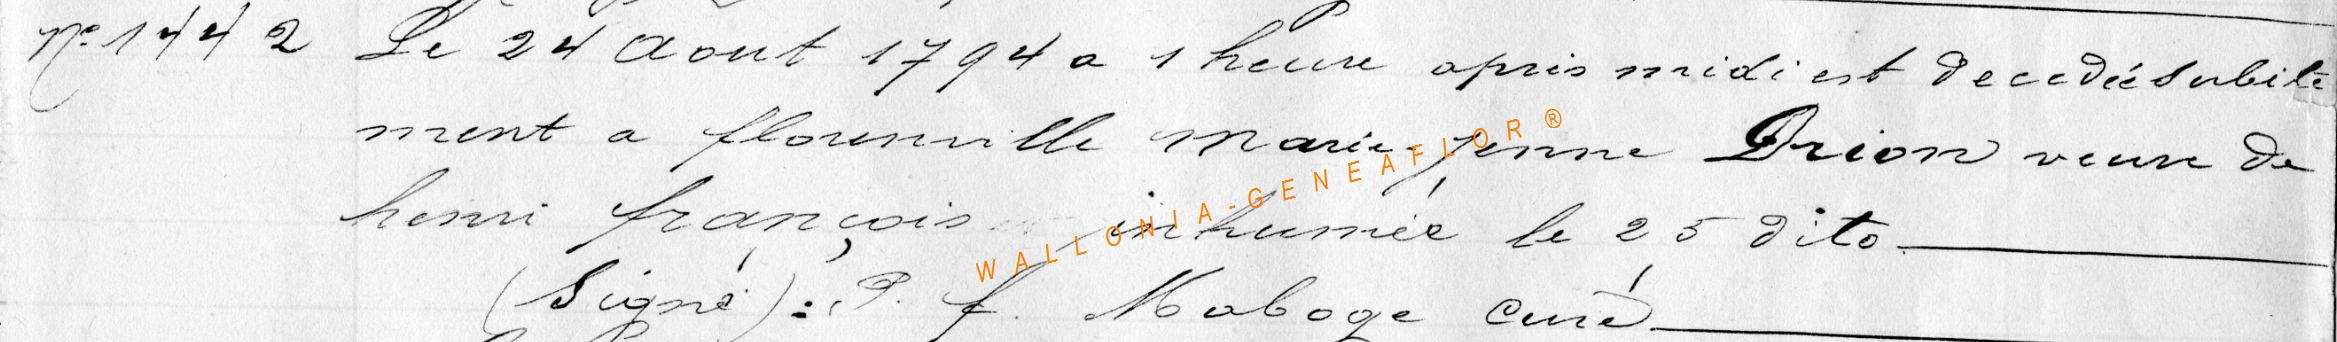 n° 1442 Le 24 Aout 1794 a 1 heure apris midi est decedée subite
ment a florenville Marie-jenne Drion veuve de
henri françois inhumée le 25 dito
(Signé): P. f. Maboge curé
WALLONIA-GENEAFLOR®